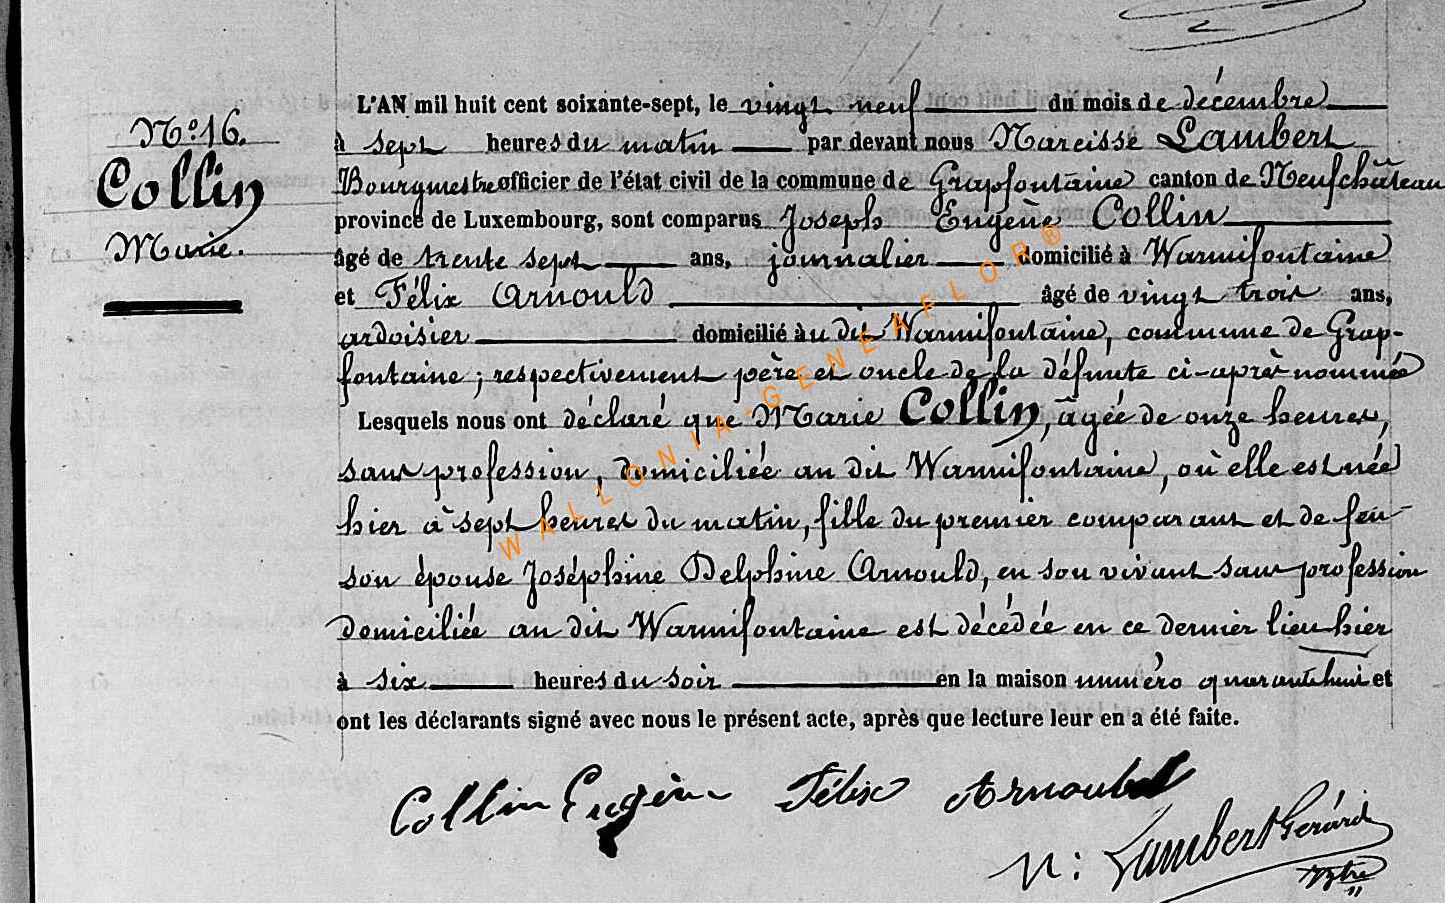 N° 16.
Collin
Marie.
L'AN mil huit cent soixante-sept, le vingt neuf du mois de décembre
à sept heures du matin par devant nous Narcisse Lambert
Bourgmestre officier de l'état civil de la commune de Grapfontaine canton de Neufchâteau
province de Luxembourg, sont comparus Joseph Eugène Collin
âgé de trente sept ans, journalier domicilié à Warmifontaine
et Félix Arnould âgé de vingt trois ans,
ardoisier domicilié au dit Warmifontaine, commune de Grap-
fontaine ; respectivement père et oncle de la défunte ci-après nommée
Lesquels nous ont déclaré que Marie Collin, âgée de onze heures,
sans profession, domiciliée au dit Warmifontaine, où elle est née
hier à sept heures du matin, fille du premier comparant et de feu
son épouse Joséphine Delphine Arnould, en son vivant sans profession
domiciliée au dit Warmifontaine est décédée en ce dernier lieu hier
à six heures du soir en la maison numéro quarante huit et
ont les déclarants signé avec nous le présent acte, après que lecture leur en a été faite.
Collin Eugène Félix Arnould
N : Lambert Gérard
WALLONIA-GENEAFLOR®